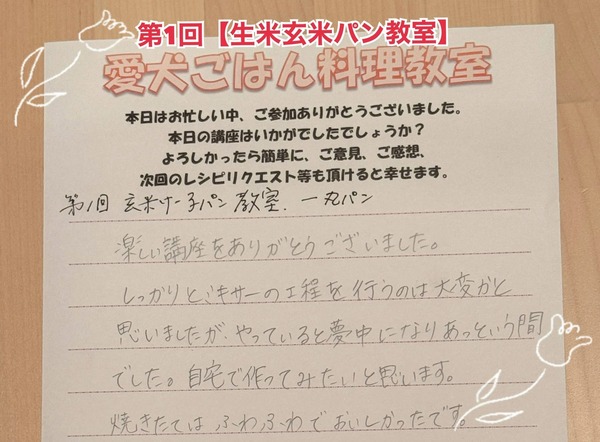 第1回【生米玄米パン教室】
愛犬ごはん料理教室
本日はお忙しい中、ご参加ありがとうございました。
本日の講座はいかがでしたでしょうか？
よろしかったら簡単に、ご意見、ご感想、
次回のレシピリクエスト等も頂けると幸せます。
第1回 玄米ケーチパン教室. 一丸パン
楽しい講座をありがとうございました。
しっかりとミキサーの工程を行うのは大変かと
思いましたが、やっていると夢中になりあっという間
でした。自宅で作ってみたいと思います。
焼きたてはふわふわでおいしかったです。